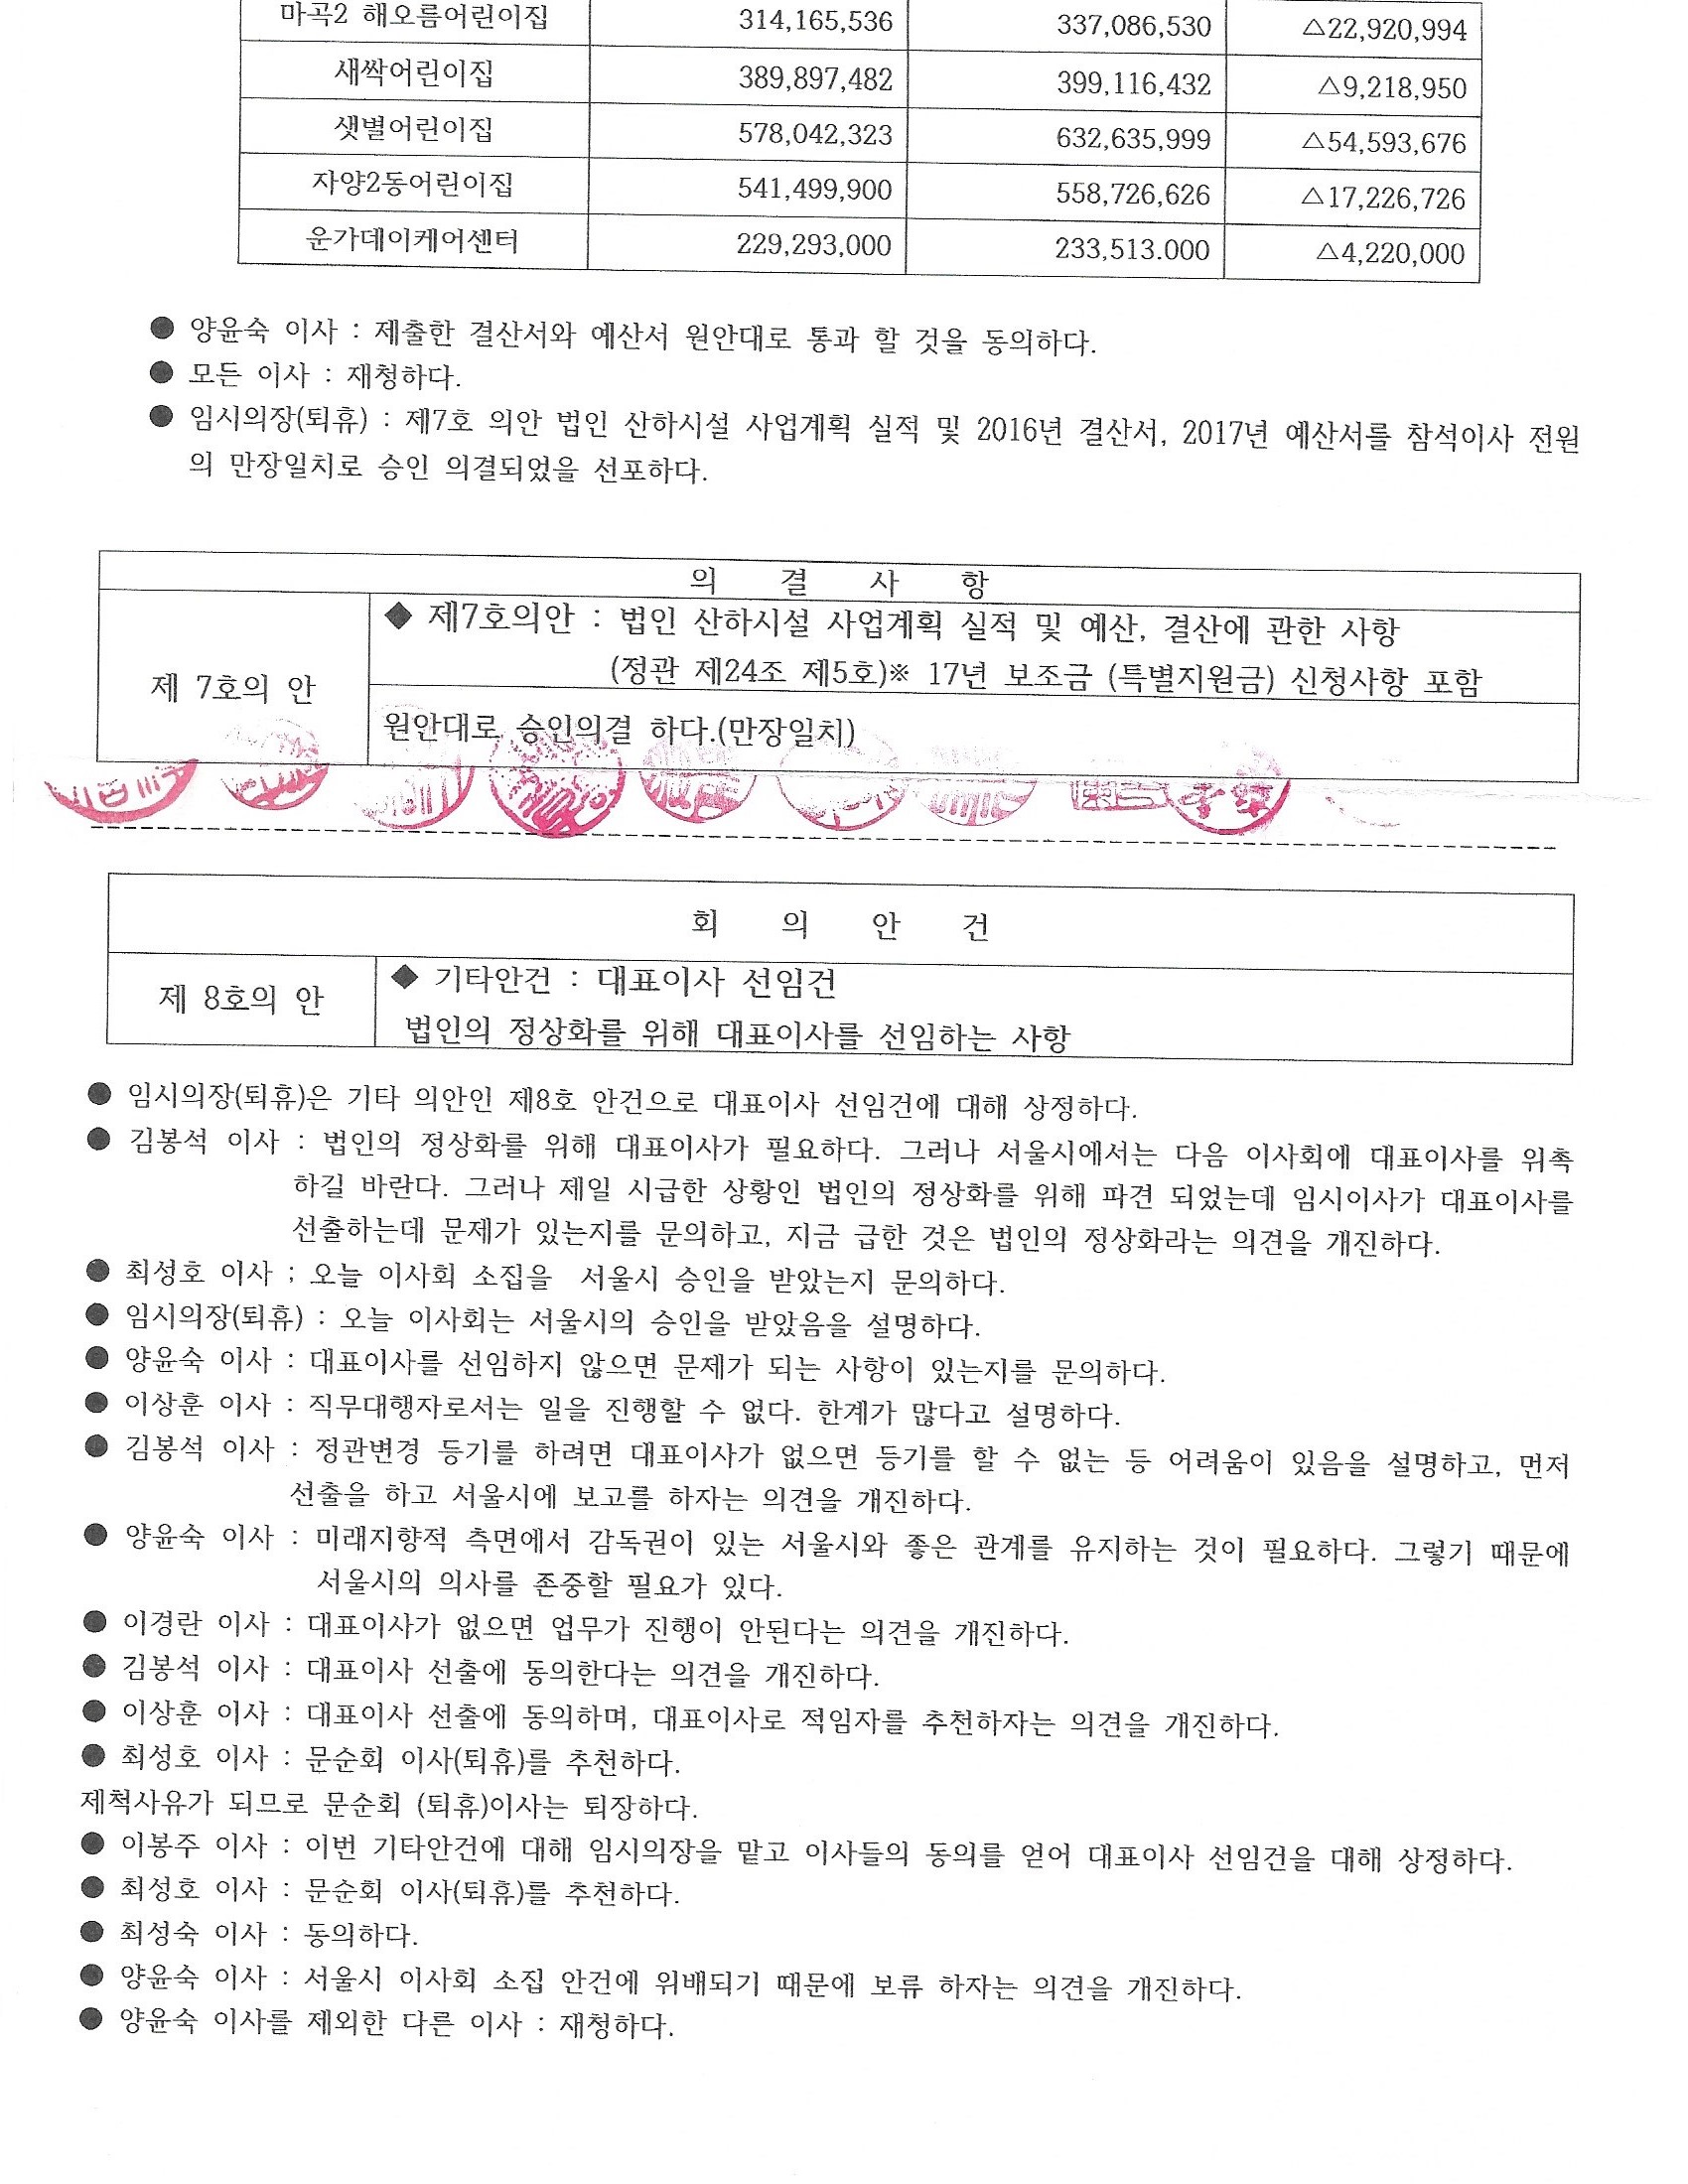 마곡2 해오름어린이집 314,165,536 337,086,530 △22,920,994
새싹어린이집 389,897,482 399,116,432 △9,218,950
샛별어린이집 578,042,323 632,635,999 △54,593,676
자양2동어린이집 541,499,900 558,726,626 △17,226,726
운가데이케어센터 229,293,000 233,513.000 △4,220,000
● 양윤숙 이사 : 제출한 결산서와 예산서 원안대로 통과 할 것을 동의하다.
● 모든 이사 : 재청하다.
● 임시의장(퇴휴) : 제7호 의안 법인 산하시설 사업계획 실적 및 2016년 결산서, 2017년 예산서를 참석이사 전원
의 만장일치로 승인 의결되었을 선포하다.
의 결 사 항
◆ 제7호의안 : 법인 산하시설 사업계획 실적 및 예산, 결산에 관한 사항
(정관 제24조 제5호)※ 17년 보조금 (특별지원금) 신청사항 포함
제 7호의 안
원안대로 승인의결 하다.(만장일치)
회 의 안 건
◆ 기타안건 : 대표이사 선임건
제 8호의 안
법인의 정상화를 위해 대표이사를 선임하는 사항
● 임시의장(퇴휴)은 기타 의안인 제8호 안건으로 대표이사 선임건에 대해 상정하다.
● 김봉석 이사 : 법인의 정상화를 위해 대표이사가 필요하다. 그러나 서울시에서는 다음 이사회에 대표이사를 위촉
하길 바란다. 그러나 제일 시급한 상황인 법인의 정상화를 위해 파견 되었는데 임시이사가 대표이사를
선출하는데 문제가 있는지를 문의하고, 지금 급한 것은 법인의 정상화라는 의견을 개진하다.
● 최성호 이사 ; 오늘 이사회 소집을 서울시 승인을 받았는지 문의하다.
● 임시의장(퇴휴) : 오늘 이사회는 서울시의 승인을 받았음을 설명하다.
● 양윤숙 이사 : 대표이사를 선임하지 않으면 문제가 되는 사항이 있는지를 문의하다.
● 이상훈 이사 : 직무대행자로서는 일을 진행할 수 없다. 한계가 많다고 설명하다.
● 김봉석 이사 : 정관변경 등기를 하려면 대표이사가 없으면 등기를 할 수 없는 등 어려움이 있음을 설명하고, 먼저
선출을 하고 서울시에 보고를 하자는 의견을 개진하다.
● 양윤숙 이사 : 미래지향적 측면에서 감독권이 있는 서울시와 좋은 관계를 유지하는 것이 필요하다. 그렇기 때문에
서울시의 의사를 존중할 필요가 있다.
● 이경란 이사 : 대표이사가 없으면 업무가 진행이 안된다는 의견을 개진하다.
● 김봉석 이사 : 대표이사 선출에 동의한다는 의견을 개진하다.
● 이상훈 이사 : 대표이사 선출에 동의하며, 대표이사로 적임자를 추천하자는 의견을 개진하다.
● 최성호 이사 : 문순회 이사(퇴휴)를 추천하다.
제척사유가 되므로 문순회 (퇴휴)이사는 퇴장하다.
● 이봉주 이사 : 이번 기타안건에 대해 임시의장을 맡고 이사들의 동의를 얻어 대표이사 선임건을 대해 상정하다.
● 최성호 이사 : 문순회 이사(퇴휴)를 추천하다.
● 최성숙 이사 : 동의하다.
● 양윤숙 이사 : 서울시 이사회 소집 안건에 위배되기 때문에 보류 하자는 의견을 개진하다.
● 양윤숙 이사를 제외한 다른 이사 : 재청하다.